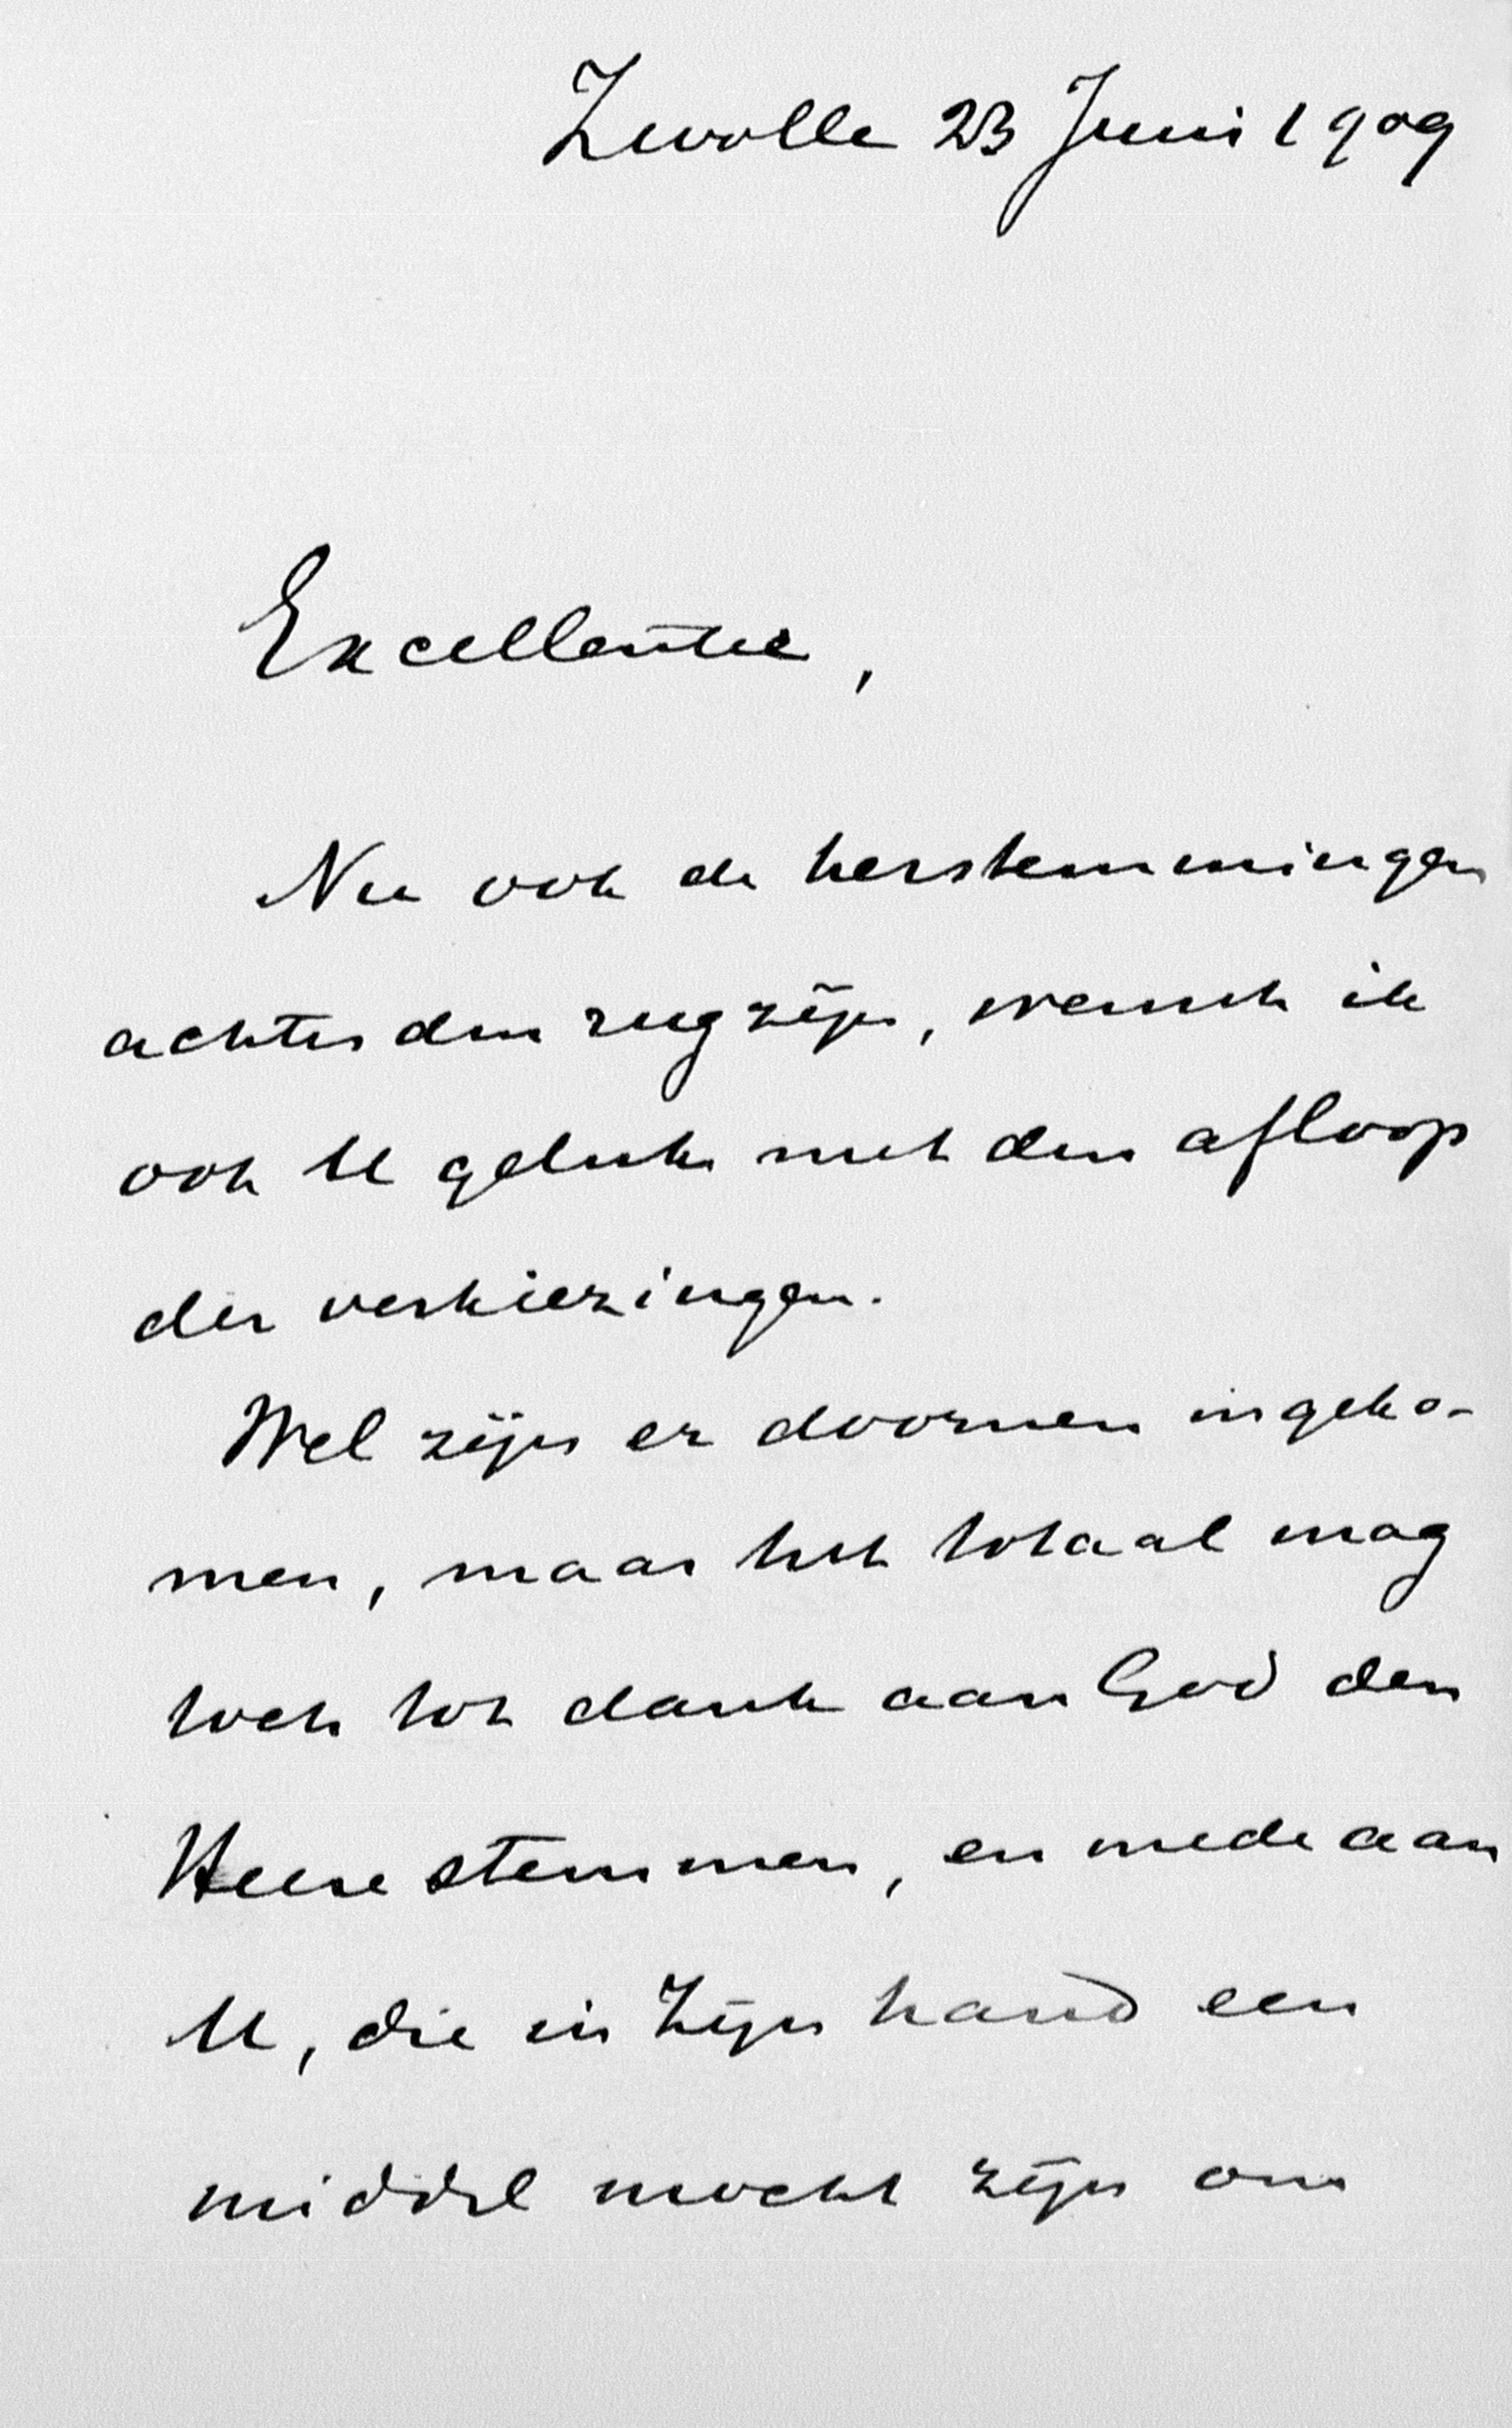 Zwolle 23 Juni 1909
Excellentie,
Nu ook de herstemmingen
achter den rug zijn, wensch ik
ook U geluk met den afloop
der verkiezingen.
Wel zijn er doornen ingeko-
men, maar het totaal mag
toch tot dank aan God den
Heere stemmen, en mede aan
U, die in Zijn hand een
middel mocht zijn om